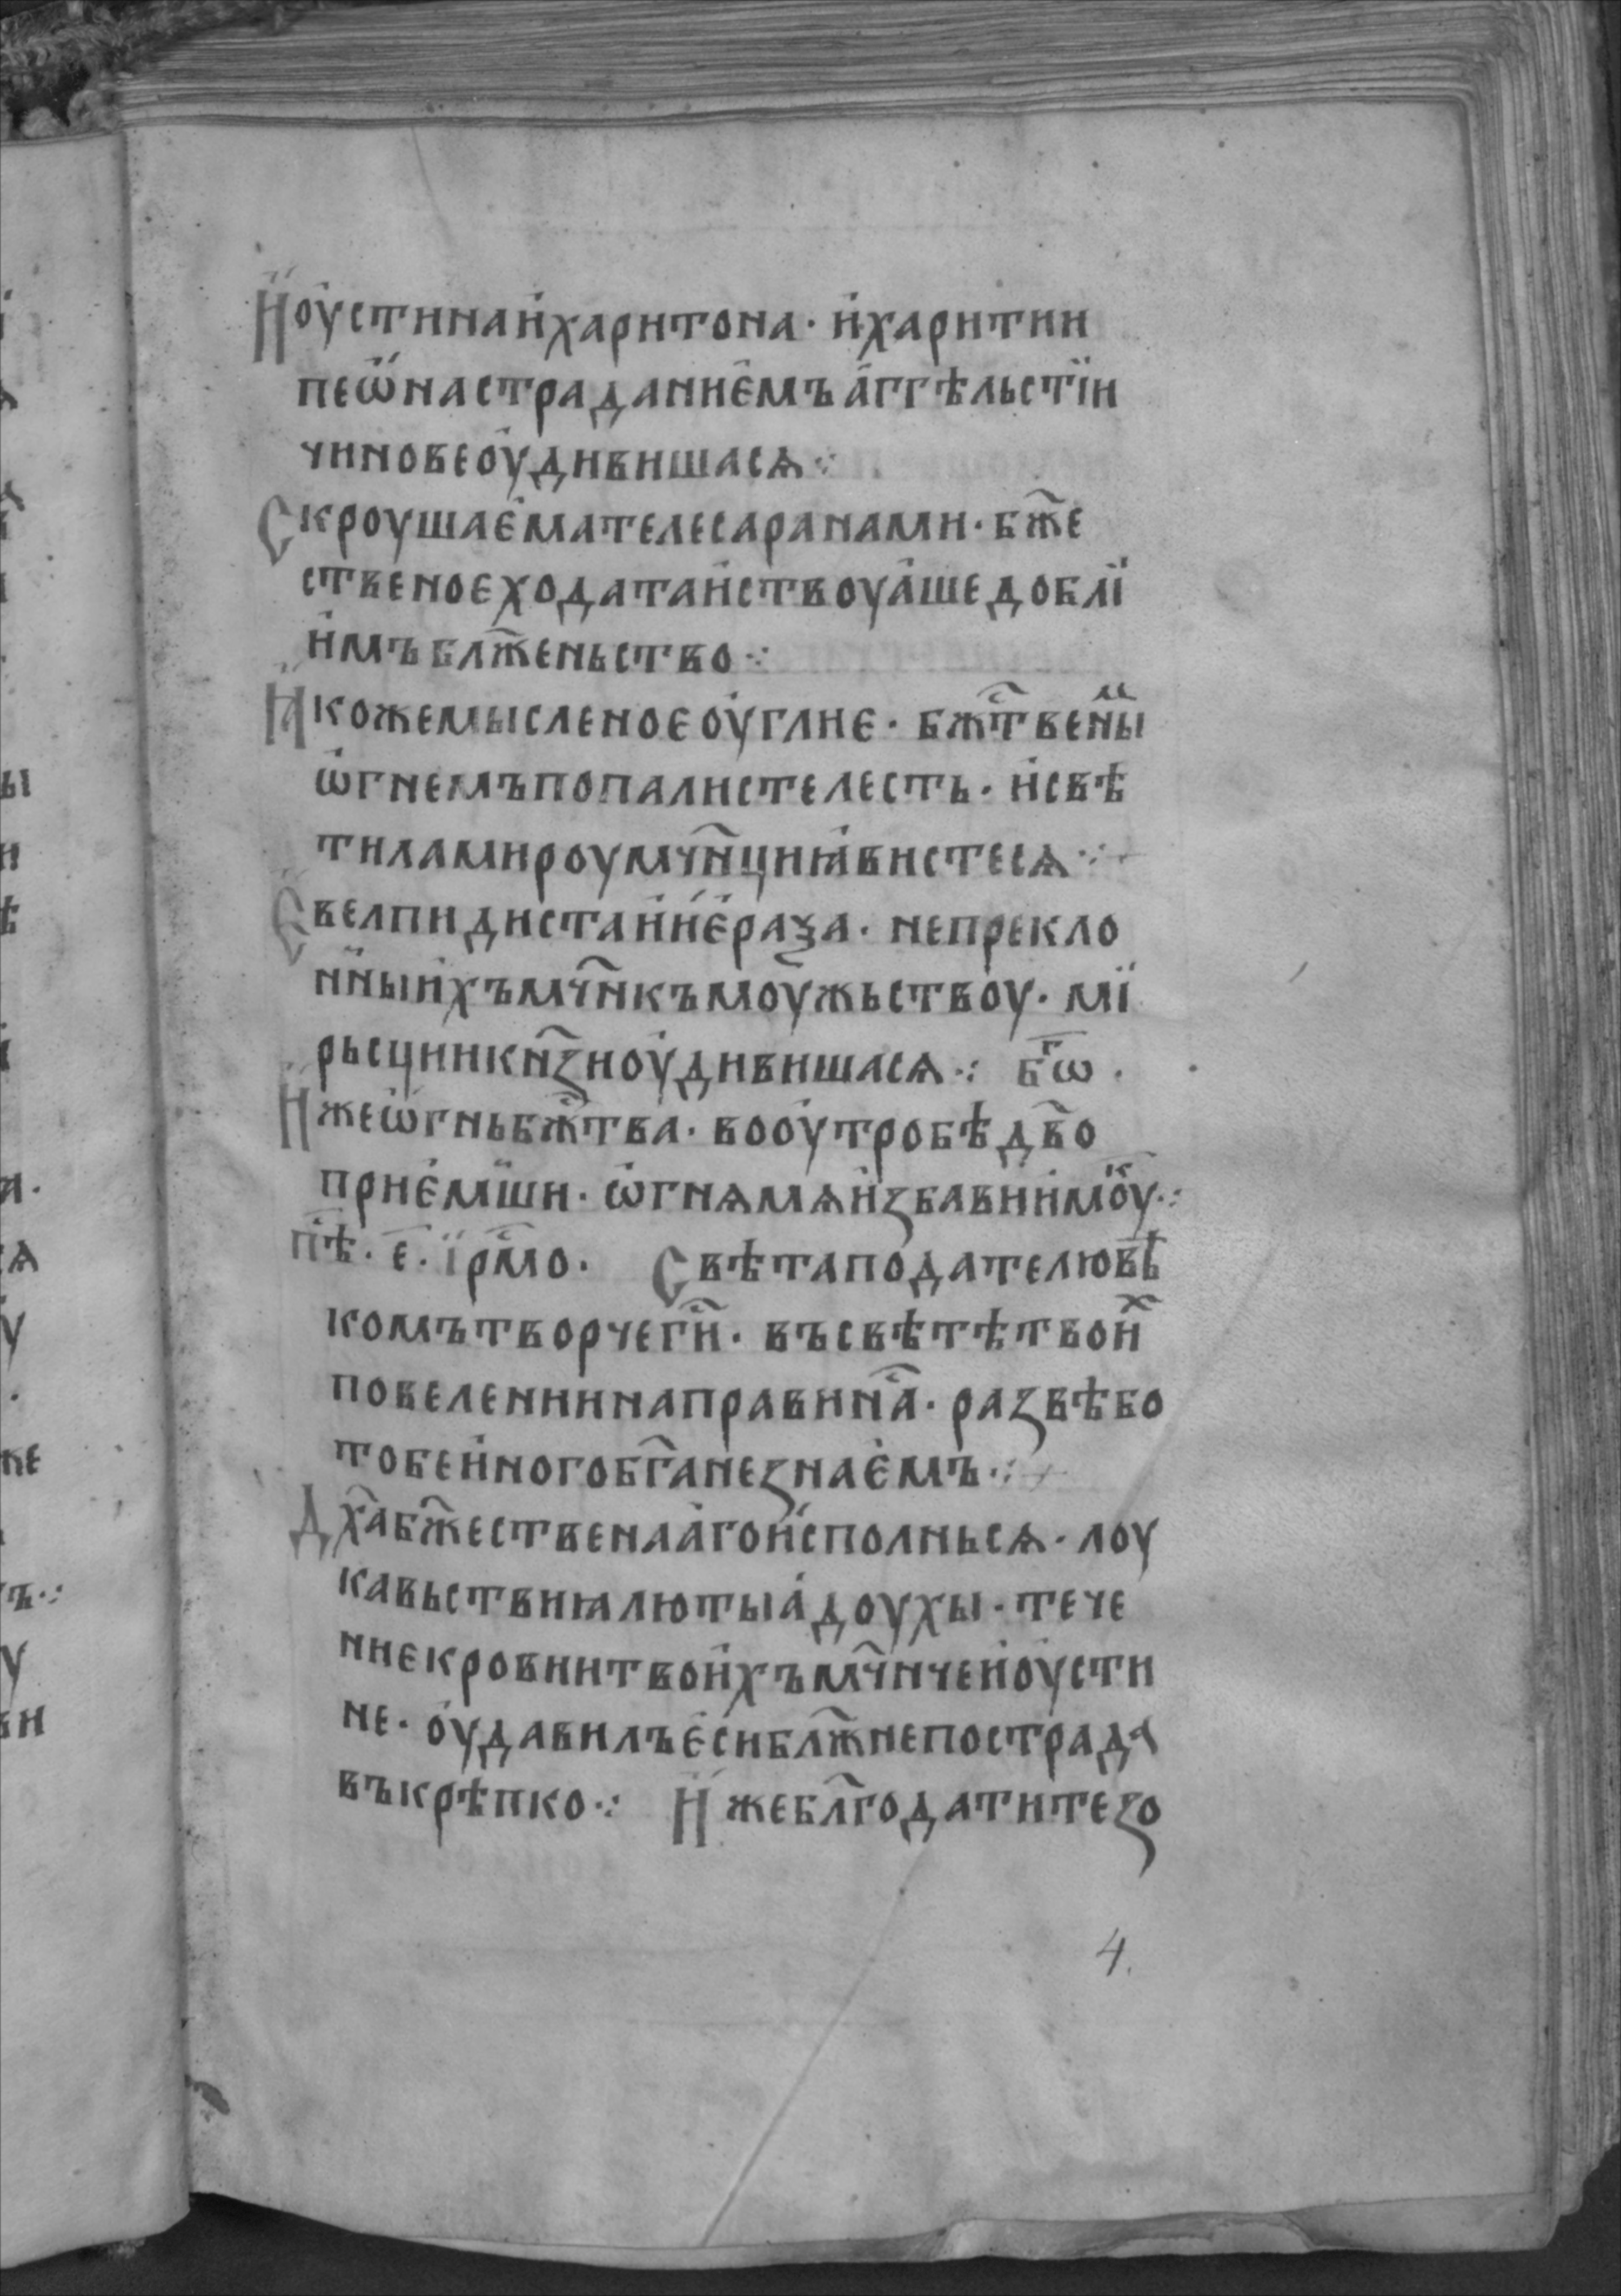 Иоустинаи҆харитона · и҆харитии
пеѡ҆настраданиѥ҆мъа҆ггѣльстїи
чиновеоу҆дивишасѧ ⁘
Скроушає҆мателесаранами · бж҃е
ственоєходатаиствоуа҆шедоблїи
и҆мъблж҃еньство ⁘
Ꙗкожемысленоєоу҆глиє · бжⷭ҇твены
ѡ҆гнемъпопалистелесть · и҆свѣ
тиламироумч҃нциꙗ҆вистесѧ ⁘
Євелпидистаи҆иє҆раѯа · непрекло
нныи҆хъмч҃нкъмоужьствоу · мї
рьсциикн҃ѕиоу҆дивишасѧ ⁘ бг҃ѡ ·
Ижеѡ҆гньбжⷭ҇тва · вооу҆тробѣдв҃о
приє҆мши · ѡ҆гнѧмѧи҆збавии҆мⷤоу ⁘
пⷭ҇ѣ · є҃ · ї҆рмⷭ҇о · Свѣтаподателювѣ
комътворчегⷭ҇и · въсвѣтѣтвоиⷯ
повелениинаправинⷭ҇а · развѣбо
тобеи҆ногобг҃анезнає҆мъ ⁘
Дх҃абж҃ественаа҆гои҆сполньсѧ · лоу
кавьствиꙗлютыа҆доухы · тече
ниєкровиитвои҆хъмч҃ничеи҆оу҆сти
не · оу҆давилъє҆сиблж҃непострада
въкрѣпко ⁘ Ижебл҃годатитезо
4.